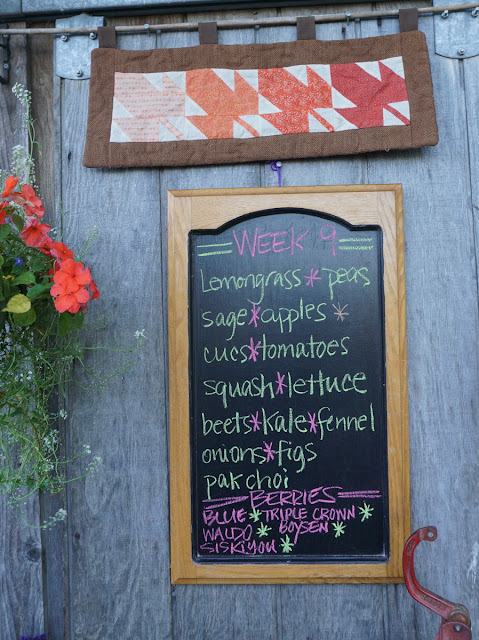 WEEK 9
Lemongrass * peas
sage * apples *
cucs * tomatoes
squash * lettuce
beets * kale * fennel
onions * figs
pak choi
BERRIES
BLUE * TRIPLE CROWN *
WALDO * BOYSEN *
SISKIYOU *